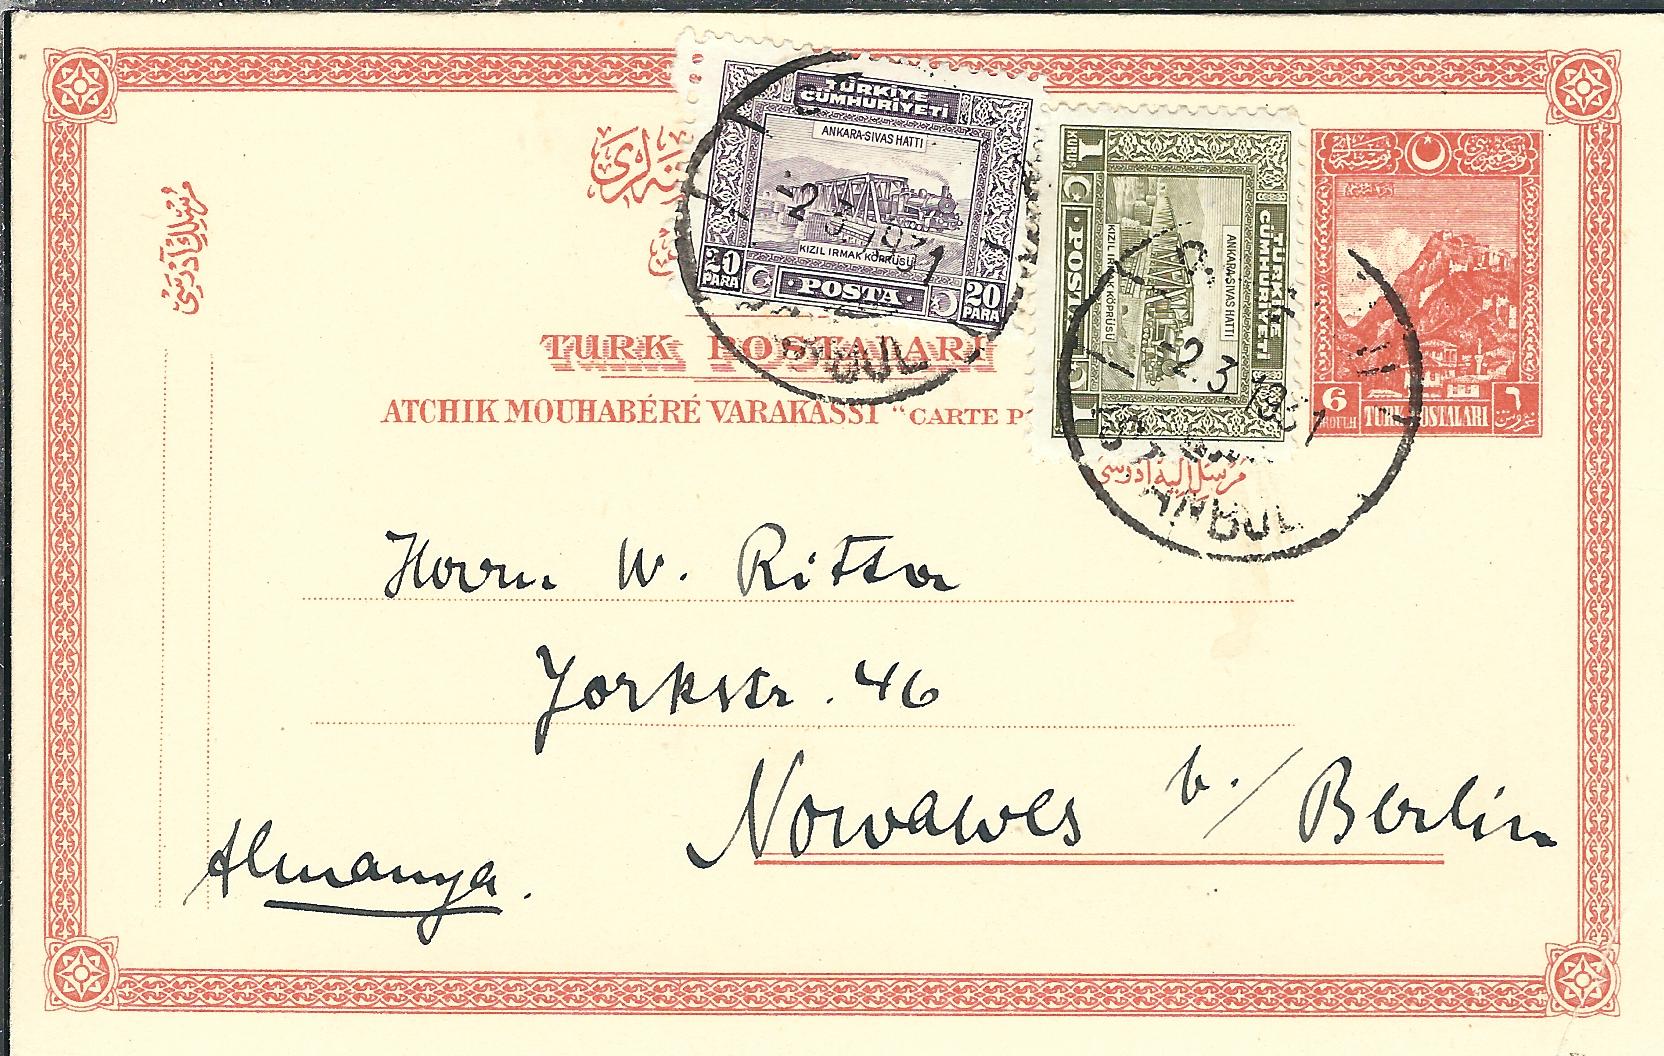 TÜRKİYE
CÜMHURİYETİ
ANKARA-SIVAS HATTI
KIZIL IRMAK KÖPRÜSÜ
20
PARA
POSTA
20
PARA
2 3 1931
1
KURUŞ
TÜRKİYE
CÜMHURİYETİ
ANKARA-SIVAS HATTI
KIZIL IRMAK KÖPRÜSÜ
POSTA
2.3.1931
ANBUL
6
٦
غروش
TURK POSTALARI
مرسلك آدرسى
TURK POSTALARI
ATCHIK MOUHABÉRÉ VARAKASSI "CARTE P
مرسل اليه آدرسى
Herrn W. Ritter
Yorkstr. 46
Nowawes b./Berlin
Almanya.